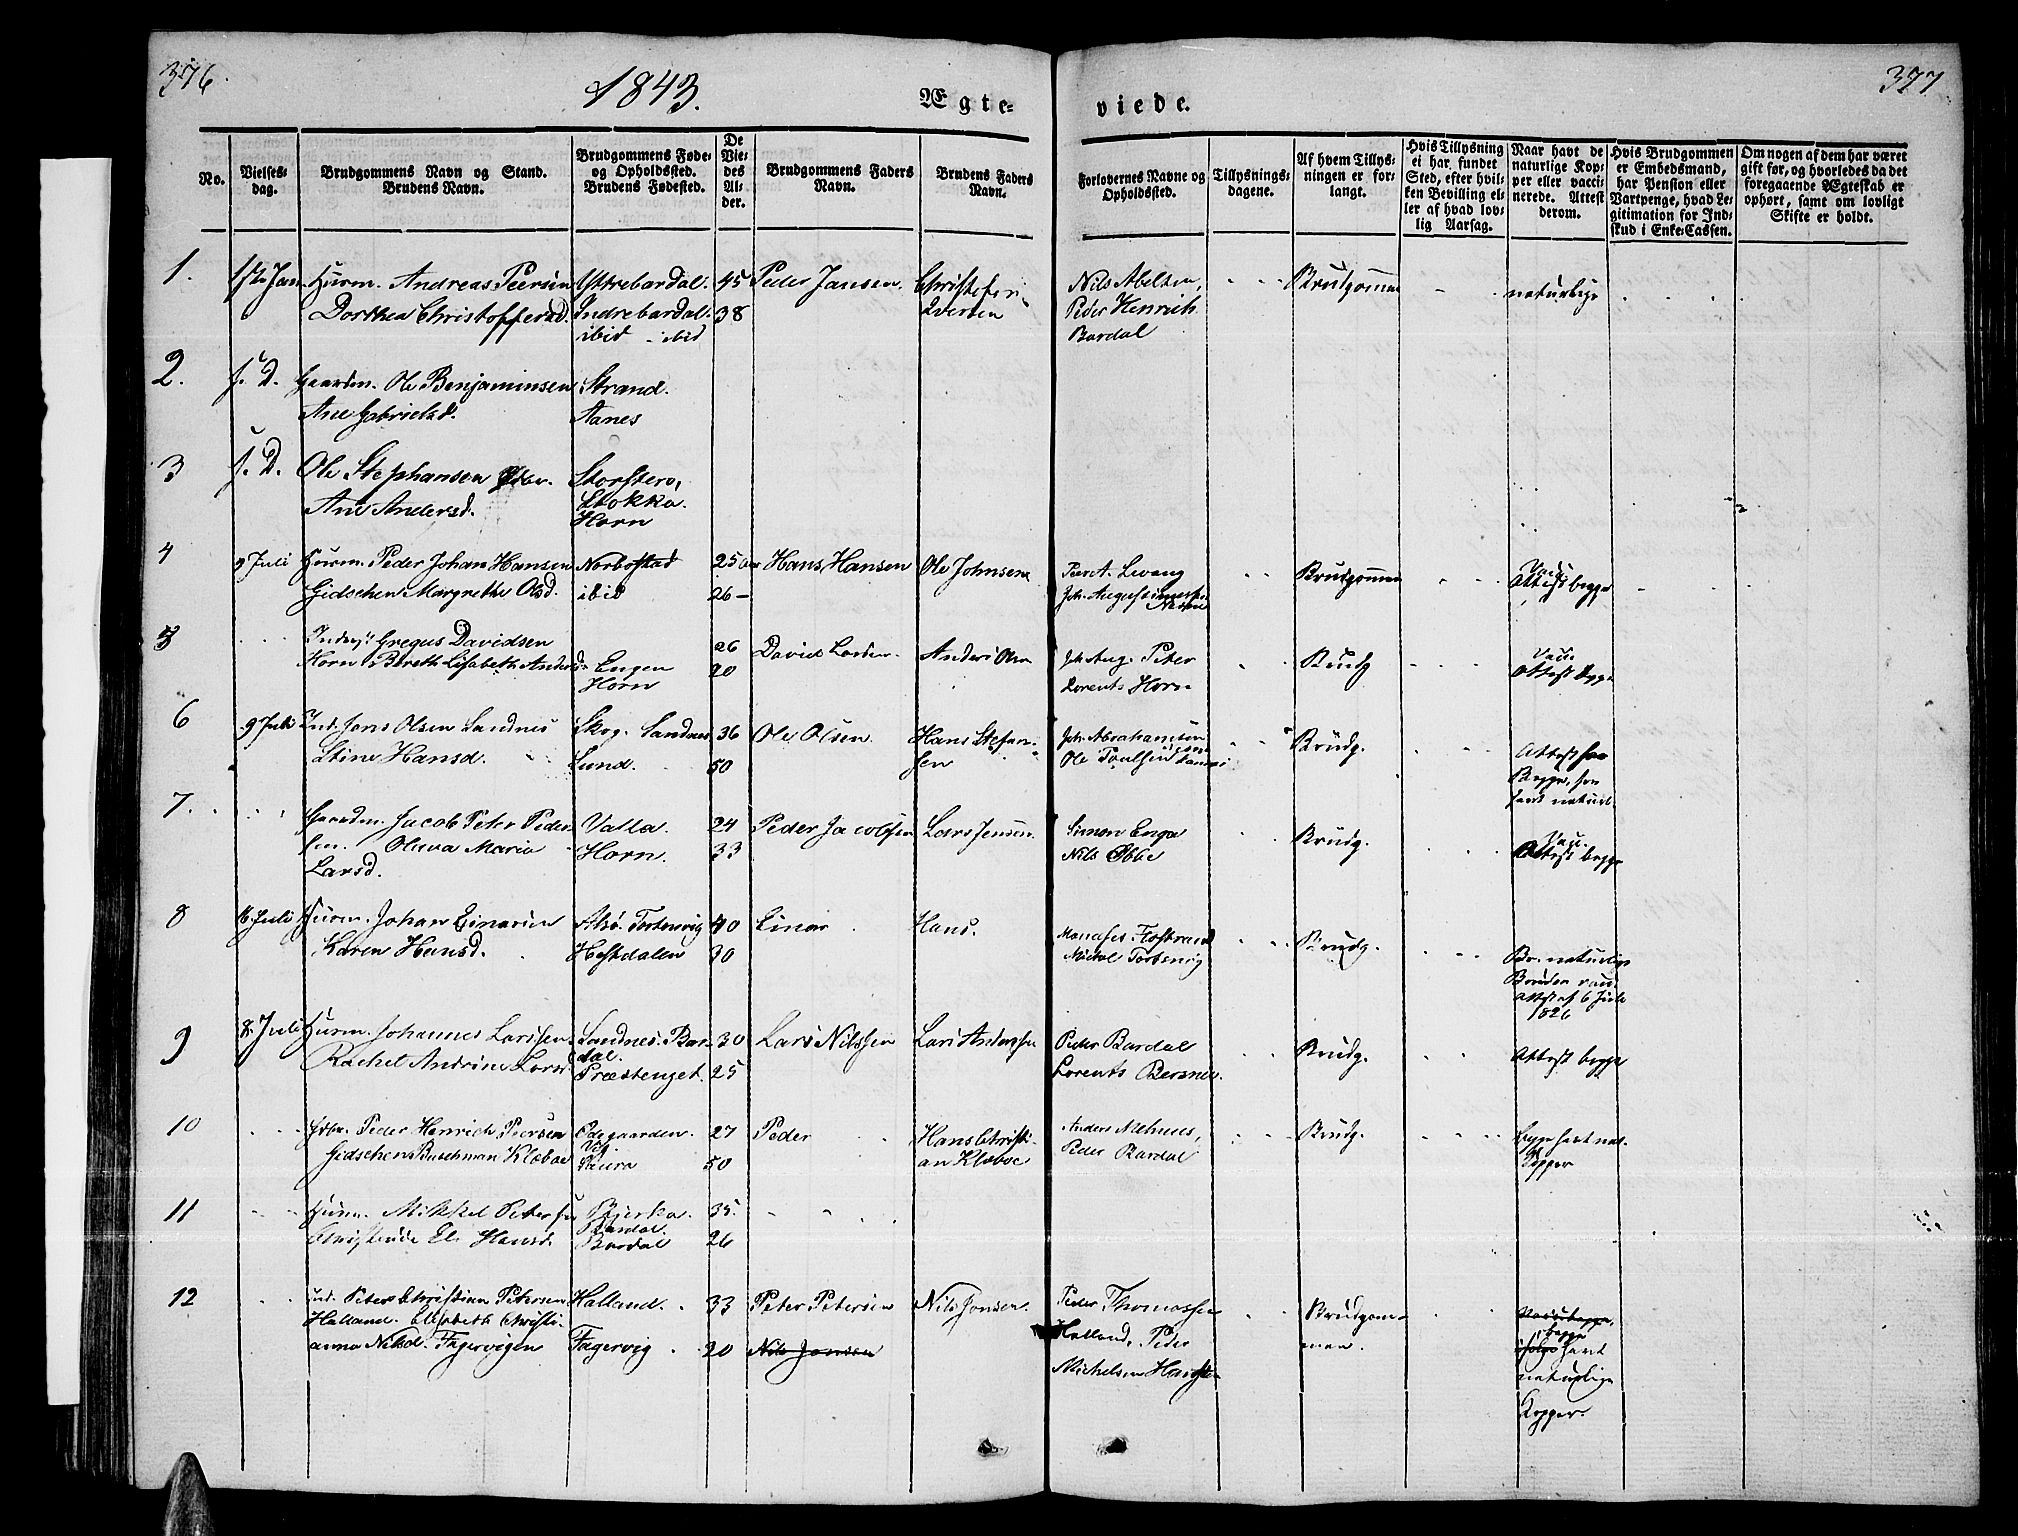 376.
1843.
Ægte=
viede.
377
No.
Vielses=
dag.
Brudgommens Navn og Stand.
Brudens Navn.
Brudgommens Føde=
og Opholdssted.
Brudens Fødested.
De
Vie=
des
Al=
der.
Brudgommens Faders
Navn.
Brudens Faders
Navn.
Forlovernes Navne og
Opholdssted.
Tillysnings=
dagene.
Af hvem Tillys=
ningen er for=
langt.
Hvis Tillysning
ei har fundet
Sted, efter hvil=
ken Bevilling el=
ler af hvad lov=
lig Aarsag.
Naar havt de
naturlige Kop=
per eller vacci=
nerede. Attest
derom.
Hvis Brudgommen
er Embedsmand,
har Pension eller
Vartpenge, hvad Le=
gitimation for Ind=
skud i Enke=Cassen.
Om nogen af dem har været
gift før, og hvorledes da det
foregaaende Ægteskab er
ophørt, samt om lovligt
Skifte er holdt.
1.
Jan
Huusm. Andreas Peersen
Dorthea Christoffersd.
Yttrebardal.
Indrebardal.
ibid - ibid
45
38
Peder Jansen.
Christofer
Iversen
Nils Abelsen,
Peder Henrich
Bardal
Brudgommen
naturlige
2.
s. D.
Gaardm. Ole Benjaminsen
Ane Gabrielsd.
Strand.
Aanes
3
s. D.
Ole Stephansen
Ane Andersd.
Storsteen,
Stokka.
Horn
4
9 Juli
Huusm. Peder Johan Hansen
Gidschen Margrethe Olsd.
Norbostad
ibid
25
26 -
Hans Hansen
Ole Johnsen
Peer A. Levang
Joh. August
Brudgommen
Vacc.
Attest begge
5
Gregus Davidsen
Horn Bereth Lisabeth Andersd.
Engen
Horn
26
20
David
Anders Olsen
Joh. Aug. Peter
Lorents Horn
Brudg
Vacc.
Attest begge
6
9 Juli
Ind. Jens Olsen Sandnes
Stine Hansd.
Skog. Sandnes
Lund.
36
50
Ole Olsen.
Hans Stefan-
sen
Joh. Abrahamsen
Ole Poulsen
Brudg.
Attest
Begge,
havt naturl.
7.
Gaardm. Jacob Peter Peder-
sen. Oluva Maria
Larsd.
Valla.
Horn.
24
33
Peder Jacobsen
Lars Jensen.
Simon Enga
Nils Ebbe
Brudg.
Vacc.
Attest begge
8
16 Juli
Huusm. Johan Einarsen
Karen Hansd.
Alsø. Tortenvig
Hestdalen
40
30
Einar
Hans.
Manases Flostrand
Mickel Tortenvig
Brudg.
Br. naturlige
Bruden vacc.
attest af 6 Juli
1826
9
8. Juli
Huusm. Johannes Larssen
Rachel Andrine Larsd
Sandnes. Bar-
dal.
Præstenget.
30
25
Lars Nilssen
Lars Anderssen
Peder Bardal
Lorents
Brudg.
Attest begge
10
Peder Henrich Peersen
Gidschen Buschman Klæboe
Ødegaarden.
Saura
27
50
Peder
Hans Christi-
an Klæboe
Anders Mehuus,
Peder Bardal
Brudg.
begge havt nat.
Kopper
11
Huusm. Mikkel Petersen
Hansd.
Bjerka.
Bardal.
Bardal
35.
26
12
Ind. Peter Christian Petersen
Halland. Elisabeth Christi-
anna Nilsd. Fagervigen
Halland.
Fagervig
33
20
Peter Petersen
Nils Jonsen
Nils Jonsen.
Peder Thomassen
Halland, Peder
Michelsen
Brudgom-
men.
begge
havt
naturlige
Kopper.